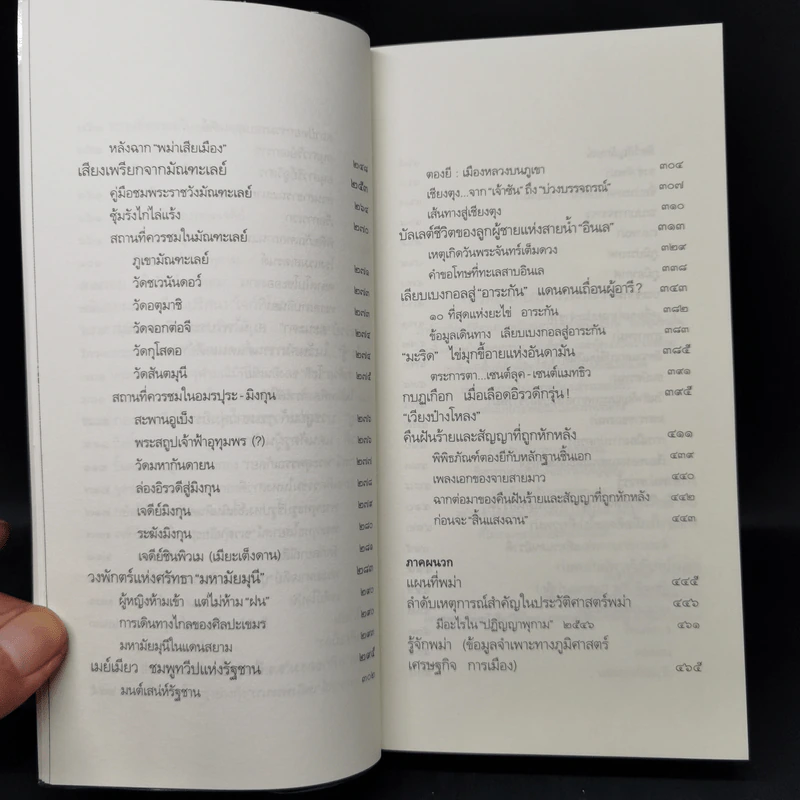 หลังฉาก "พม่าเสียเมือง" ๒๔๘
เสียงเพรียกจากมัณฑะเลย์ ๒๕๓
คู่มือชมพระราชวังมัณฑะเลย์ ๒๖๔
ซุ้มรังไก่ไล่แร้ง ๒๗๐
สถานที่ควรชมในมัณฑะเลย์
ภูเขามัณฑะเลย์ ๒๗๑
วัดชเวนันดอว์ ๒๗๓
วัดอตุมาชิ ๒๗๓
วัดจอกต่อจี ๒๗๔
วัดกุโสดอ ๒๗๔
วัดสันตมุนี ๒๗๕
สถานที่ควรชมในอมรปุระ - มิงกุน
สะพานอูเบ็ง ๒๗๖
พระสถูปเจ้าฟ้าอุทุมพร (?) ๒๗๖
วัดมหากันดายน ๒๗๗
ล่องอิรวดีสู่มิงกุน ๒๗๘
เจดีย์มิงกุน ๒๗๙
ระฆังมิงกุน ๒๘๐
เจดีย์ชินพิวเม (เมียะเต็งดาน) ๒๘๑
วงพักตร์แห่งศรัทธา "มหามัยมุนี" ๒๘๓
ผู้หญิงห้ามเข้า แต่ไม่ห้าม "ฝน" ๒๙๐
การเดินทางไกลของศิลปะเขมร
มหามัยมุนีในแดนสยาม ๒๙๓
เมย์เมียว ชมพูทวีปแห่งรัฐชาน ๒๙๕
มนต์เสน่ห์รัฐชาน ๓๐๒
ตองยี : เมืองหลวงบนภูเขา ๓๐๔
เชียงตุง...จาก "เจ้าซัน" ถึง "บ่วงบรรจถรณ์" ๓๐๗
เส้นทางสู่เชียงตุง ๓๑๐
บัลเลต์ชีวิตของลูกผู้ชายแห่งสายน้ำ "อินเล" ๓๑๓
เหตุเกิดวันพระจันทร์เต็มดวง ๓๒๙
คำขอโทษที่ทะเลสาบอินเล ๓๓๘
เลียบเบงกอลสู่ "อาระกัน" แดนคนเถื่อนผู้อารี ? ๓๔๓
๑๐ ที่สุดแห่งยะไข่ อาระกัน ๓๘๒
ข้อมูลเดินทาง เลียบเบงกอลสู่อาระกัน ๓๘๓
"มะริด" ไข่มุกขี้อายแห่งอันดามัน ๓๘๕
ตระการตา...เซนต์ลุค - เซนต์แมทธิว ๓๙๑
กบฏเกือก เมื่อเลือดอิรวดีกรุ่น ! ๓๙๕
"เวียงป่างโหลง"
คืนฝันร้ายและสัญญาที่ถูกหักหลัง ๔๑๑
พิพิธภัณฑ์ตองยีกับหลักฐานชิ้นเอก ๔๓๙
เพลงเอกของจายสายมาว ๔๔๐
ฉากต่อมาของคืนฝันร้ายและสัญญาที่ถูกหักหลัง ๔๔๒
ก่อนจะ "สิ้นแสงฉาน" ๔๔๓
ภาคผนวก
แผนที่พม่า ๔๔๕
ลำดับเหตุการณ์สำคัญในประวัติศาสตร์พม่า ๔๔๖
มีอะไรใน "ปฏิญญาพุกาม" ๒๕๔๖ ๔๖๑
รู้จักพม่า (ข้อมูลจำเพาะทางภูมิศาสตร์
เศรษฐกิจ การเมือง) ๔๖๕